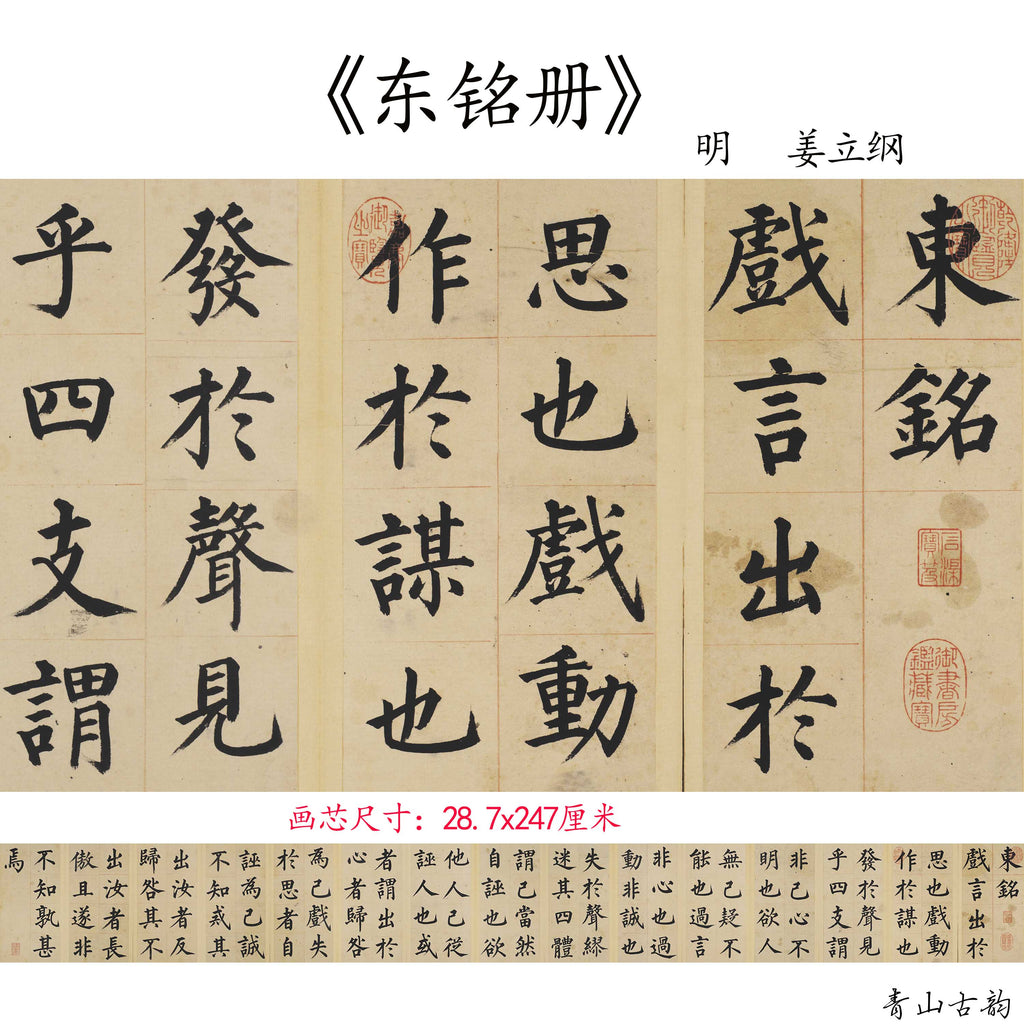 《东铭册》
明 姜立纲
東銘
戲言出於
思也戲動
作於謀也
發於聲見
乎四支謂
乾隆御覽之寶
石渠寶笈
御書房鑑藏寶
嘉慶御覽之寶
画芯尺寸：28.7x247厘米
東銘
戲言出於
思也戲動
作於謀也
發於聲見
乎四支謂
非己心不
明也欲人
無己疑不
能也過言
非心也過
動非誠也
失於聲繆
迷其四體
謂己當然
自誣也欲
他人己從
誣人也或
者謂出於
心者歸咎
為己戲失
於思者自
誣為己誠
不知戒其
出汝者反
歸咎其不
出汝者長
傲且遂非
不知孰甚
焉
青山古韵